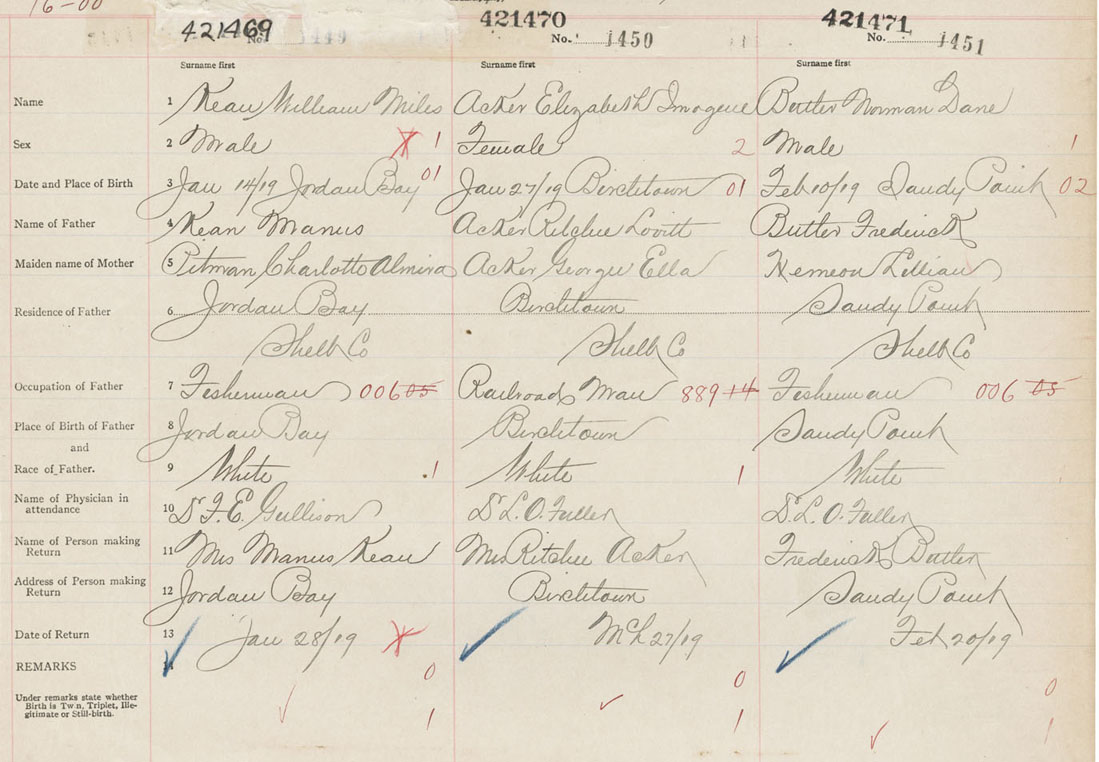 16-00
421469 421470 421471
No. 1449 No. 1450 No. 1451
Surname first Surname first Surname first
Name 1 Kean William Miles Acker Elizabeth Imogene Butler Norman Dane
Sex 2 Male 1 Female 2 Male 1
Date and Place of Birth 3 Jan 14/19 Jordan Bay 01 Jan 27/19 Birchtown 01 Feb 10/19 Sandy Point 02
Name of Father 4 Kean Manus Acker Ritchie Lovitt Butler Frederick
Maiden name of Mother 5 Pitman Charlotte Almira Acker Georgie Ella Hemeon Lillian
Residence of Father 6 Jordan Bay Birchtown Sandy Point
Shelb Co Shelb Co Shelb Co
Occupation of Father 7 Fisherman 006 05 Railroad Man 889 14 Fisherman 006 05
Place of Birth of Father 8 Jordan Bay Birchtown Sandy Point
and
Race of Father. 9 White 1 White 1 White
Name of Physician in
attendance 10 Dr F. E. Gullison Dr L. O. Fuller Dr L. O. Fuller
Name of Person making
Return 11 Mrs Manus Kean Mrs Ritchie Acker Frederick Butler
Address of Person making
Return 12 Jordan Bay Birchtown Sandy Point
Date of Return 13 Jan 28/19 Mch 27/19 Feb 20/19
REMARKS 14 0 0 0
Under remarks state whether
Birth is Twin, Triplet, Ille-
gitimate or Still-birth. 1 1 1